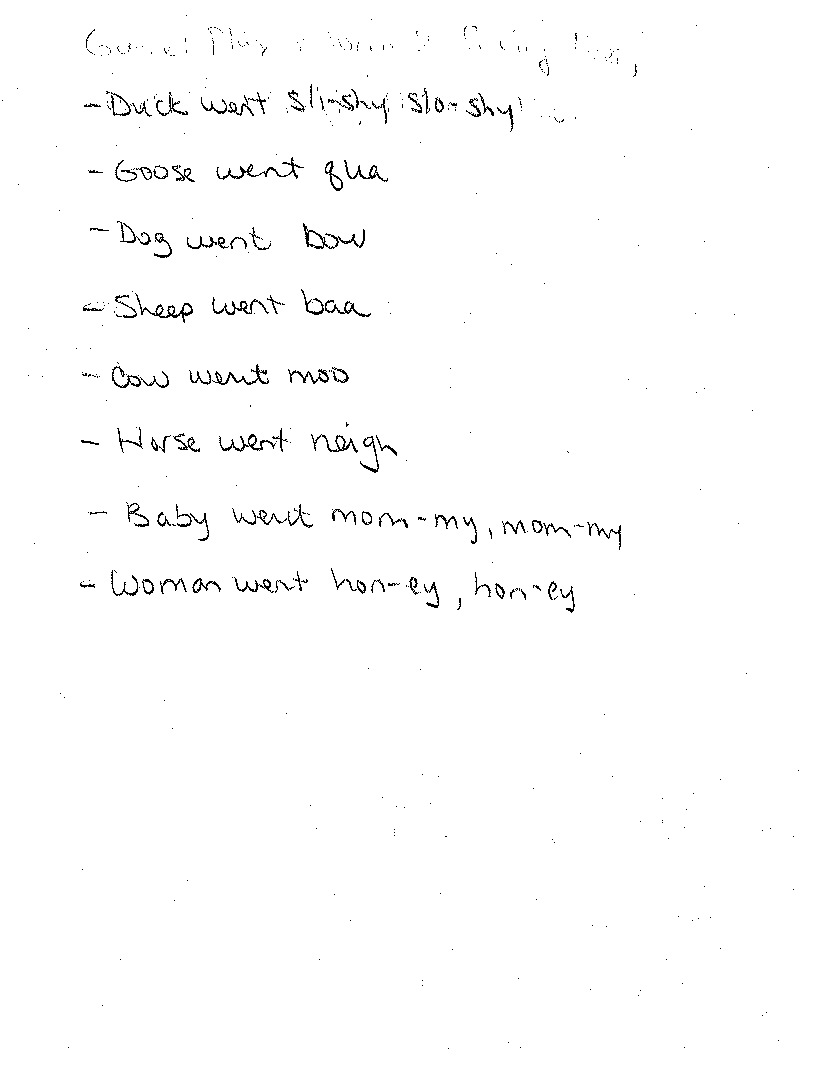 - Duck went sli-shy slo-shy
- Goose went qua
- Dog went bow
- Sheep went baa
- Cow went moo
- Horse went neigh
- Baby went mom-my, mom-my
- Woman went hon-ey, hon-ey